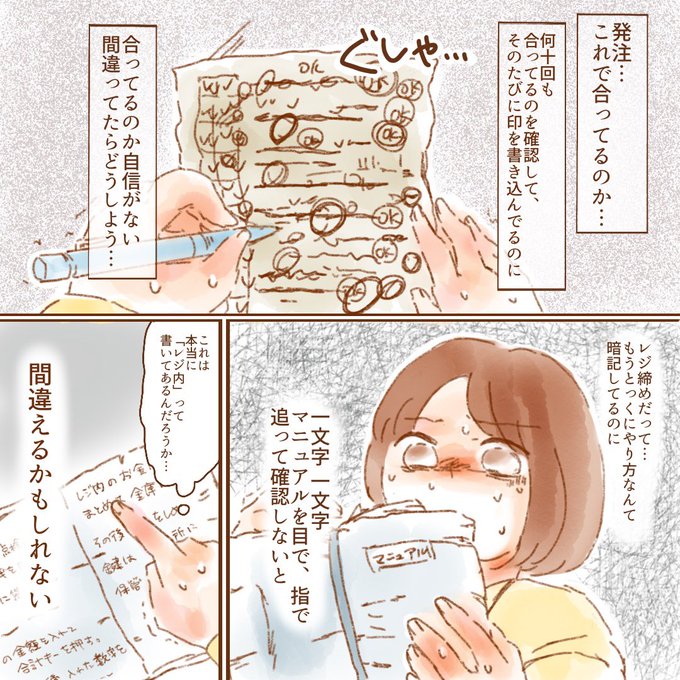 発注…
これで合ってるのか…
何十回も
合ってるのを確認して、
そのたびに印を書き込んでるのに
ぐしゃ…
OK
OK
OK
OK
OK
OK
合ってるのか自信がない
間違ってたらどうしよう…
レジ締めだって…
もうとっくにやり方なんて
暗記してるのに
マニュアル
一文字一文字
マニュアルを目で、指で
追って確認しないと
これは
本当に
「レジ内」って
書いてあるんだろうか…
レジ内のお金
まとめて 金庫
その後
をしめ
所に
鍵は
保管
の金額を入れて
合計キーを押す。
入れた数字を
間違えるかもしれない